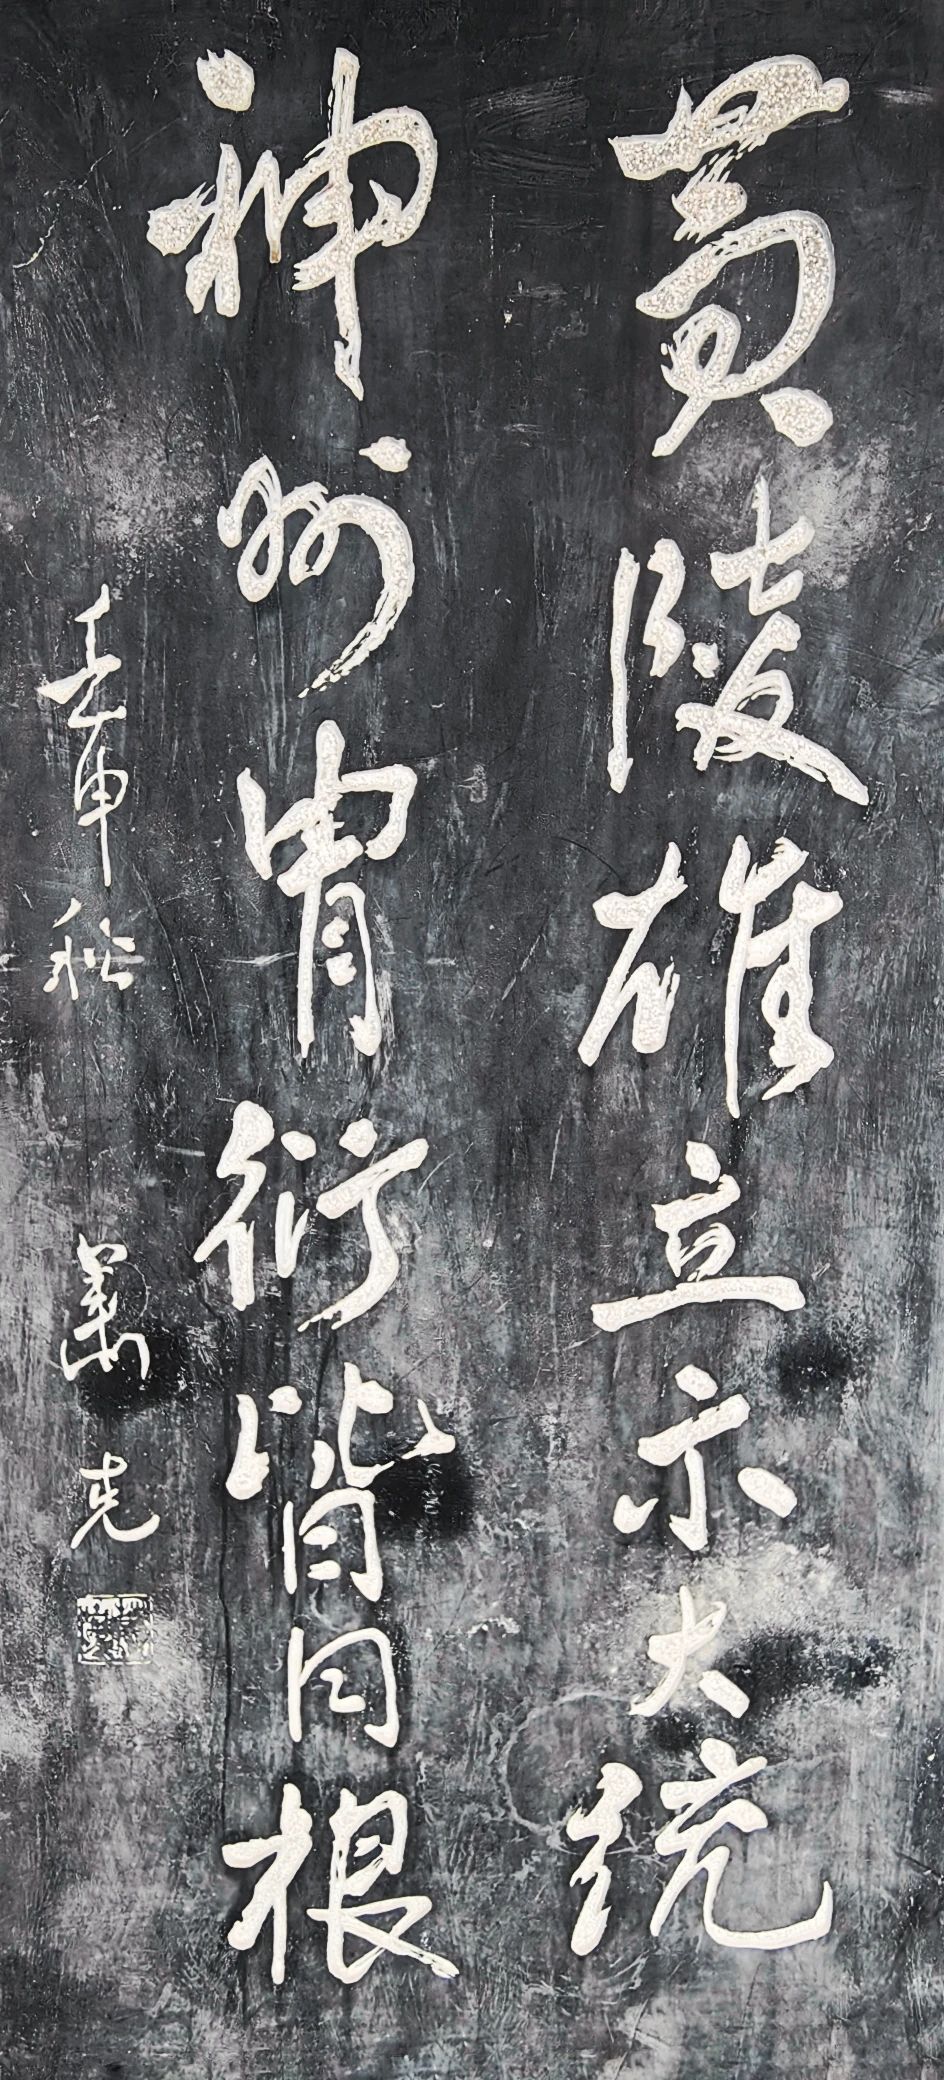 黄陵雄立示大统
神州胄衍皆同根
壬申秋 萧克